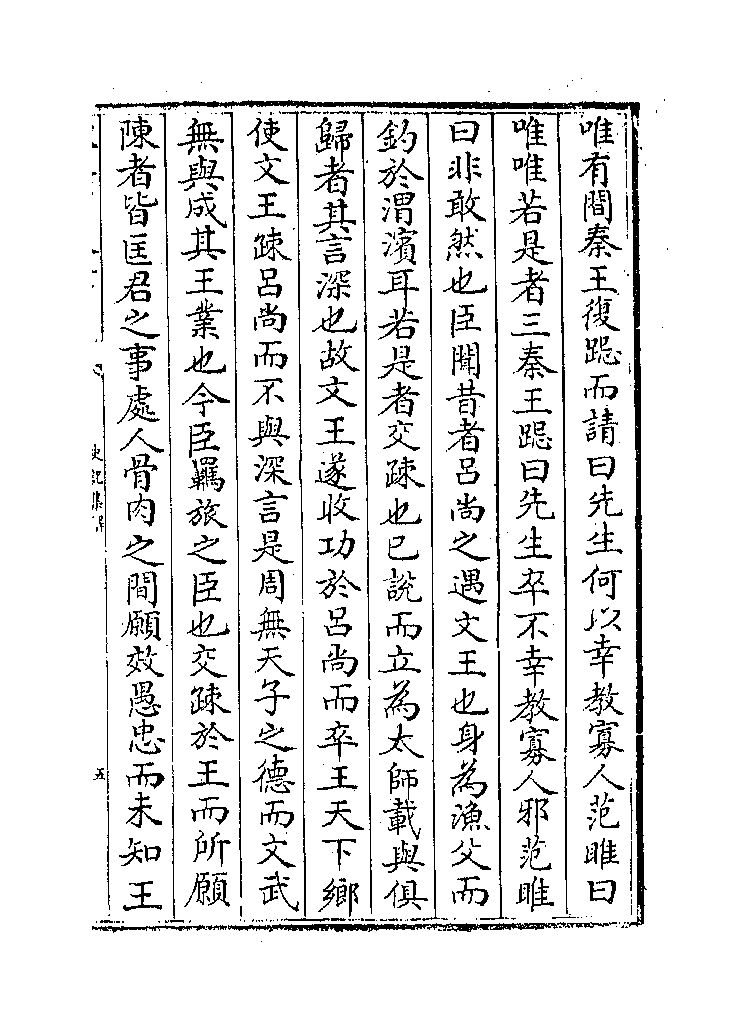 唯有間秦王復跽而請曰先生何以幸教寡人范雎曰
唯唯若是者三秦王跽曰先生卒不幸教寡人邪范雎
曰非敢然也臣聞昔者呂尚之遇文王也身為漁父而
釣於渭濱耳若是者交疎也已說而立為太師載與俱
歸者其言深也故文王遂收功於呂尚而卒王天下鄉
使文王疎呂尚而不與深言是周無天子之德而文武
無與成其王業也今臣羇旅之臣也交疎於王而所願
陳者皆匡君之事處人骨肉之間願效愚忠而未知王
史記集解
五